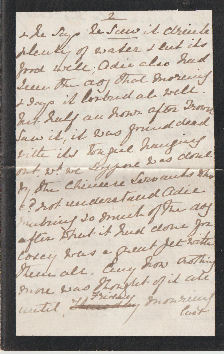 2
& he says he saw it drink
plenty of water & eat its
food well; Adie also had
seen the dog that morning
& says it looked all well.
Mr. half an hour after Brown
saw it, it was found dead
with its tongue hanging
out, wh: we suppose was done
by the Chinese Servants who
not understand Adie
making so much of the dog
after what it had done for
Casey was a great pet with
them all. Every how nothing
more was thought of it all
until Friday morning
last